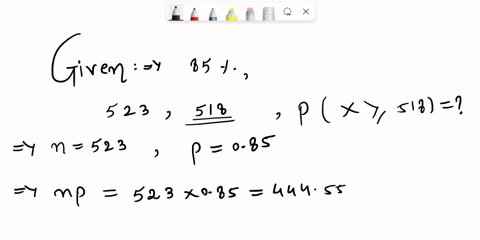 Given :⇒ 85 %,
523 , 518 , P ( X ≥, 518) = ?
⇒ n = 523 , p = 0.85
⇒ np = 523 × 0.85 = 444.55